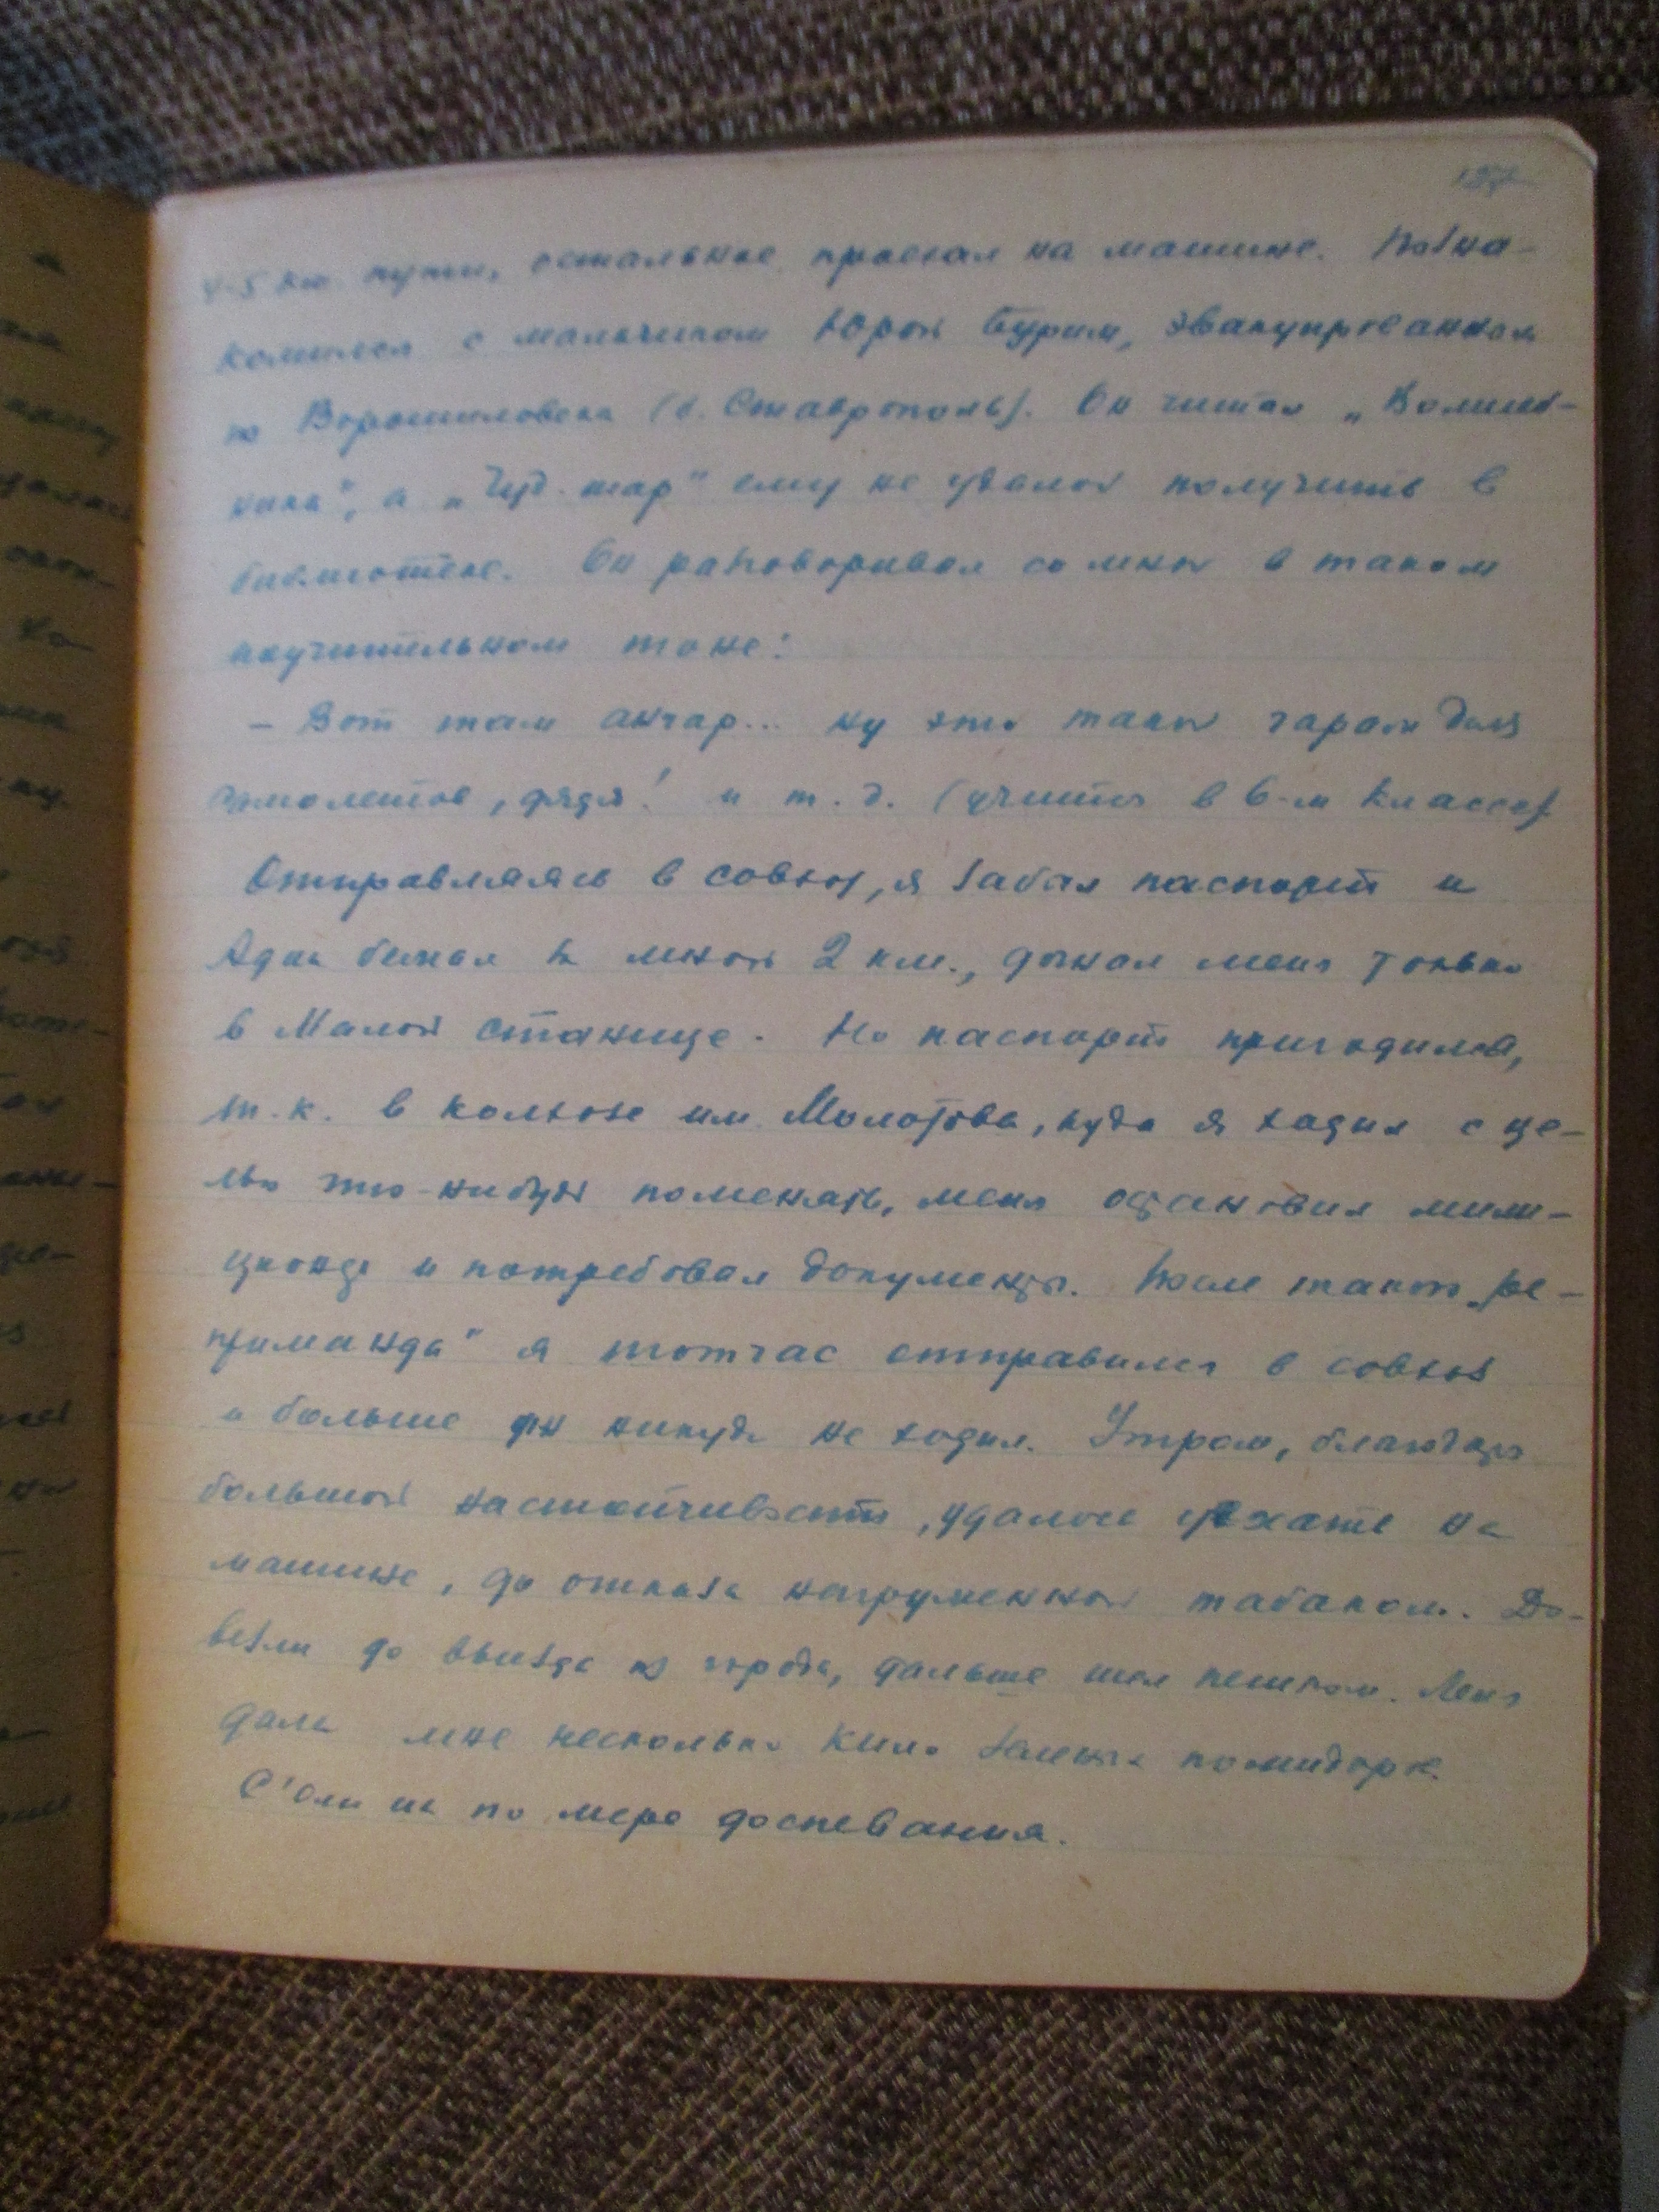 4-5 км. пути, остальное проехал на машине. Позна-
комился с мальчиком Юрой Бурим, эвакуированным
из Ворошиловска (б. Ставрополь). Он читал „Волшеб-
ника", а „Чуд. шар" ему не удалось получить в
библиотеке. Он разговаривал со мной в таком
поучительном тоне:
– Вот там ангар... ну это такой гараж для
самолетов, дядя! и т. д. (учится в 6-м классе)
Отправляясь в совхоз, я забыл паспорт и
Адик бежал за мной 2 км., догнал меня только
в Малой станице. Но паспорт пригодился,
т. к. в колхозе им. Молотова, куда я ходил с це-
лью что-нибудь поменять, меня остановил мили-
ционер и потребовал документы. После такого „ре-
приманда" я тотчас отправился в совхоз
и больше никуда не ходил. Утром, благодаря
большой настойчивости, удалось уехать на
машине, до отказа нагруженной табаком. До-
везли до въезда в город, дальше шел пешком. Лена
дала мне несколько кило зеленых помидоров.
С'ели их по мере доспевания.